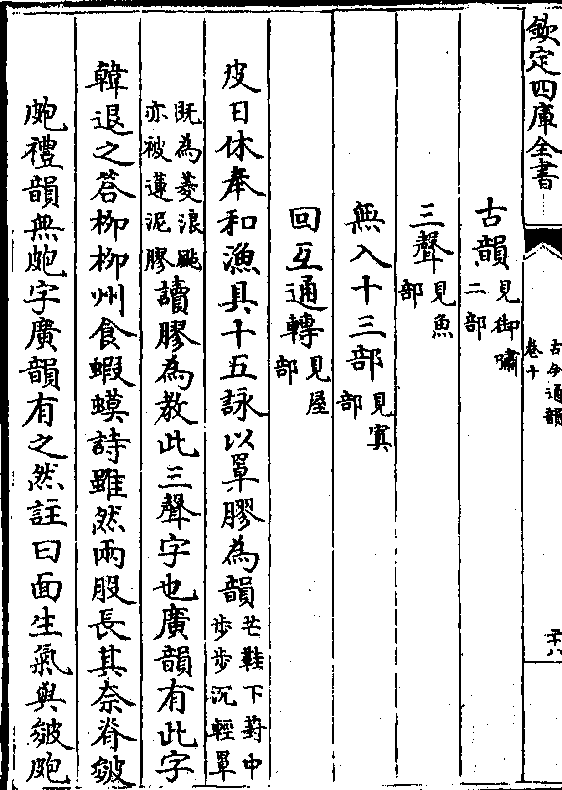 欽定四庫全書
古今通韻
卷十
古韻見御嘯二部
三聲見魚部
無入十三部見寘部
回互通轉見屋部
皮日休奉和漁具十五詠以罩膠為韻芒鞋下葑中步步沉輕罩
既為菱浪颭亦被蓮泥膠讀膠為教此三聲字也廣韻有此字
韓退之荅柳柳州食蝦蟆詩雖然兩股長其奈脊皴
皰禮韻無皰字廣韻有之然註曰面生氣與皴皰